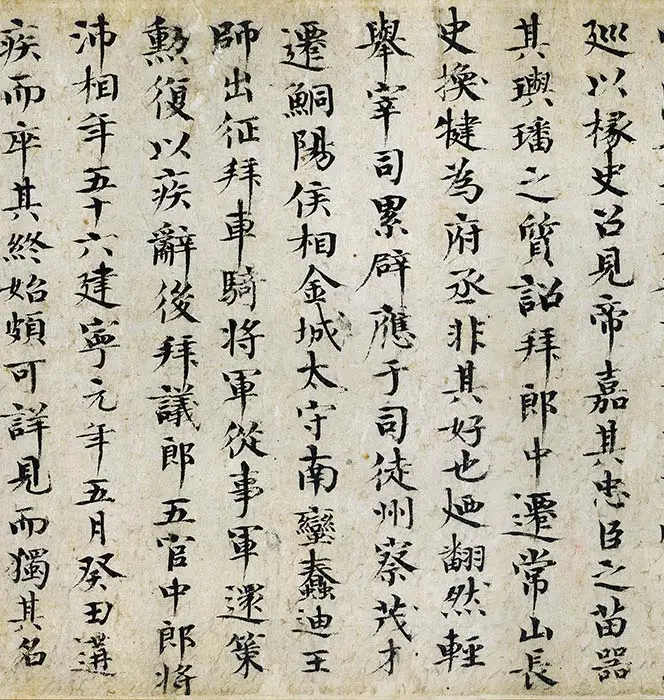 廵以椽史召見帝嘉其忠臣之苗器
其璵璠之質詔拜郎中遷常山長
史換犍為府丞非其好也廼翻然輕
舉宰司累辟應于司徒州察茂才
遷鮦陽侯相金城太守南蠻蠢迪王
師出征拜車騎将軍從事軍還策
勲復以疾辭後拜議郎五官中郎将
沛相年五十六建寧元年五月癸丑遘
疾而卒其終始頗可詳見而獨其名